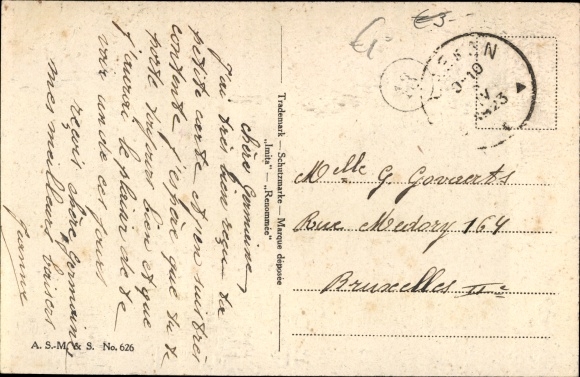 chère Germaine,
J'ai très bien reçu ta
petite carte et j'en suis très
contente j'espère que tu te
porte toujours bien et que
j'aurai le plaisir de te
voir un de ces jours
reçois chère Germaine
mes meilleurs baisers
Jeanne
A. S.-M. & S. No. 626
Trademark — Schutzmarke — Marque déposée
„Imita" — „Renommée"
1923
Melle G. Govaerts
Rue Medory 164
Bruxelles IIe